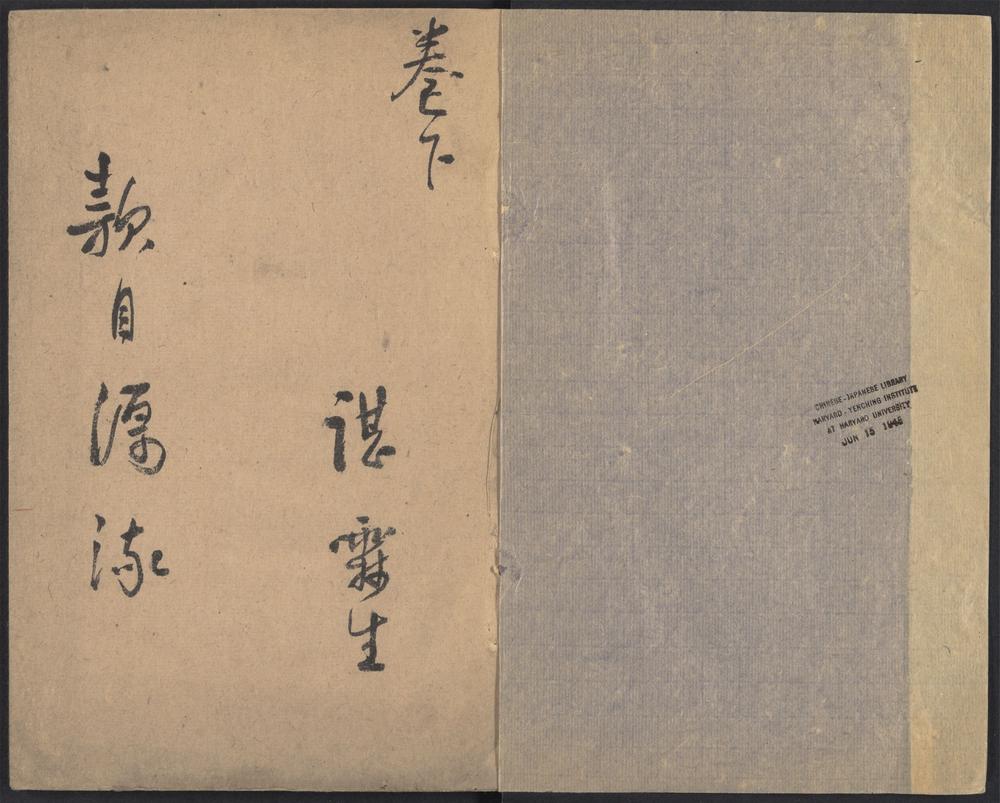 CHINESE-JAPANESE LIBRARY
HARVARD-YENCHING INSTITUTE
AT HARVARD UNIVERSITY
JUN 15
卷下
諶霖生
款自源流